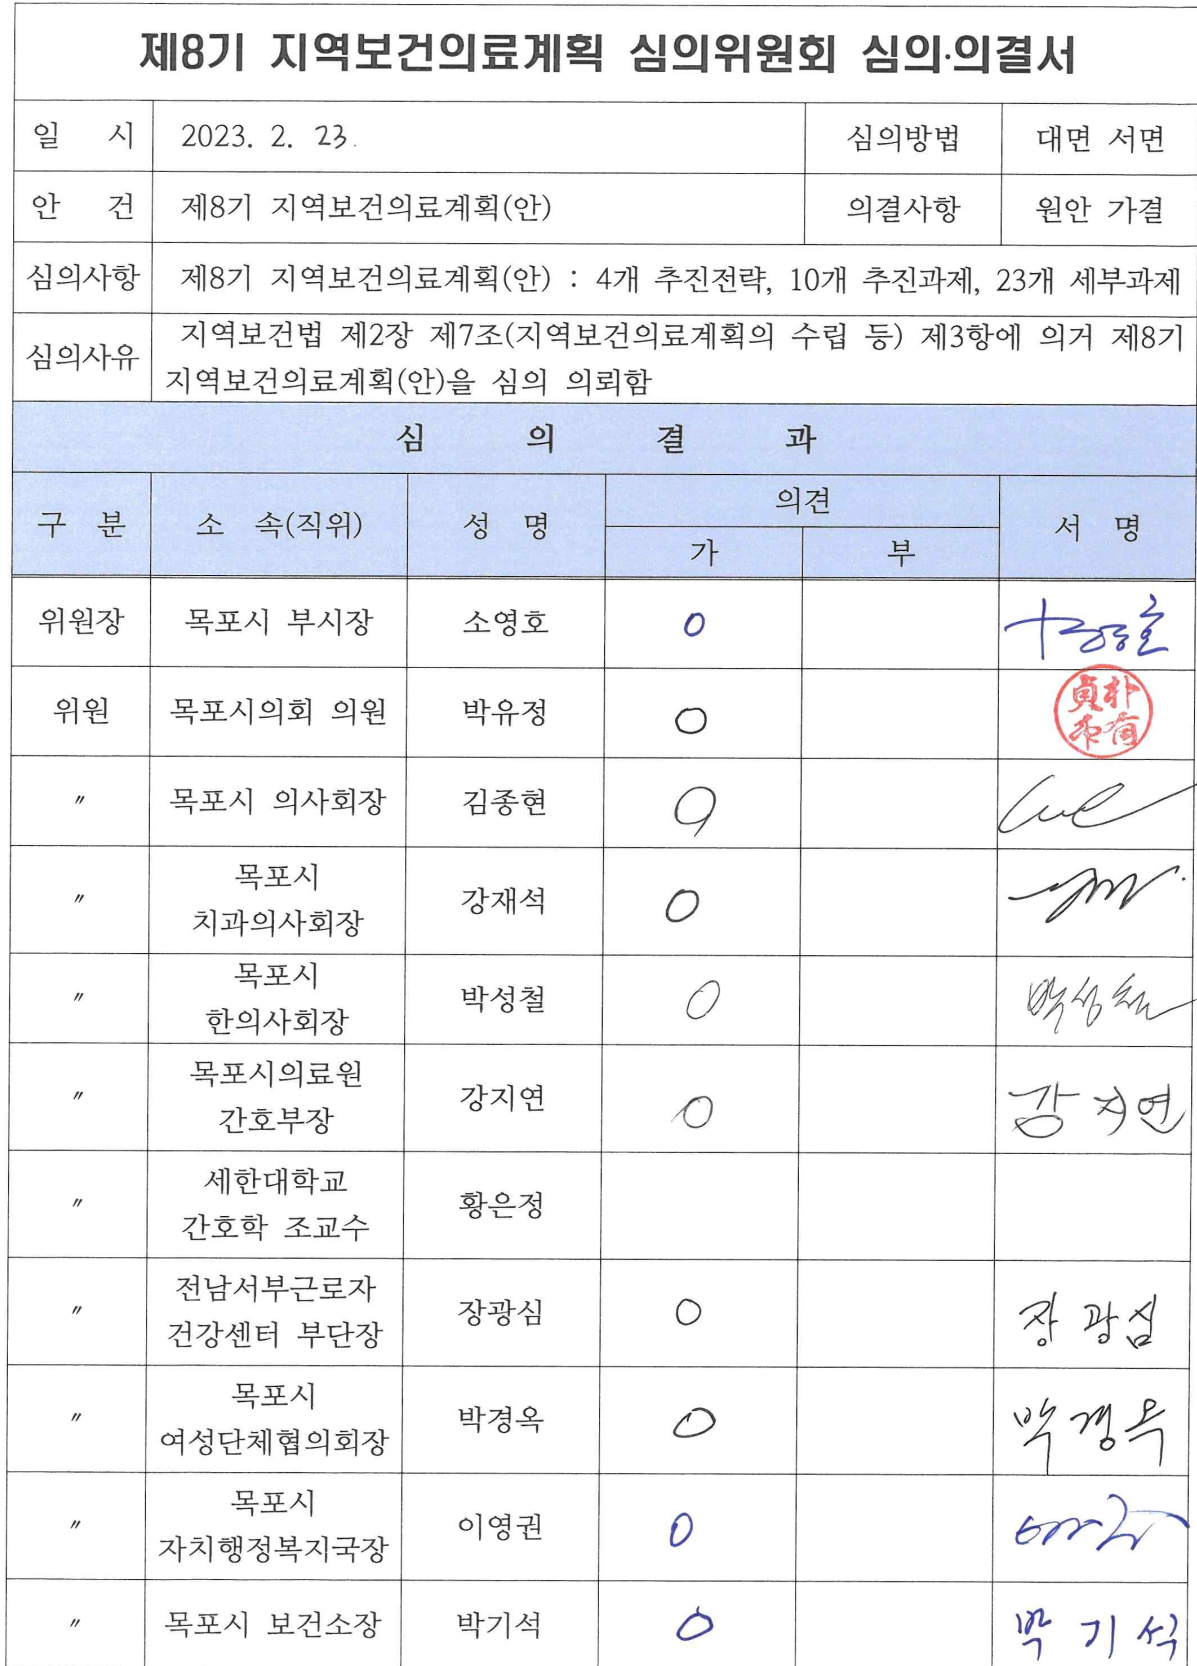 제8기 지역보건의료계획 심의위원회 심의·의결서
일 시 2023. 2. 23. 심의방법 대면 서면
안 건 제8기 지역보건의료계획(안) 의결사항 원안 가결
심의사항 제8기 지역보건의료계획(안) : 4개 추진전략, 10개 추진과제, 23개 세부과제
심의사유 지역보건법 제2장 제7조(지역보건의료계획의 수립 등) 제3항에 의거 제8기
지역보건의료계획(안)을 심의 의뢰함
심 의 결 과
구 분 소 속(직위) 성 명 의견 서 명
가 부
위원장 목포시 부시장 소영호 O
위원 목포시의회 의원 박유정 O
〃 목포시 의사회장 김종현 O
〃 목포시
치과의사회장 강재석 O
〃 목포시
한의사회장 박성철 O 박성철
〃 목포시의료원
간호부장 강지연 O 강지연
〃 세한대학교
간호학 조교수 황은정
〃 전남서부근로자
건강센터 부단장 장광심 O 장광심
〃 목포시
여성단체협의회장 박경옥 O 박경옥
〃 목포시
자치행정복지국장 이영권 O
〃 목포시 보건소장 박기석 O 박기석